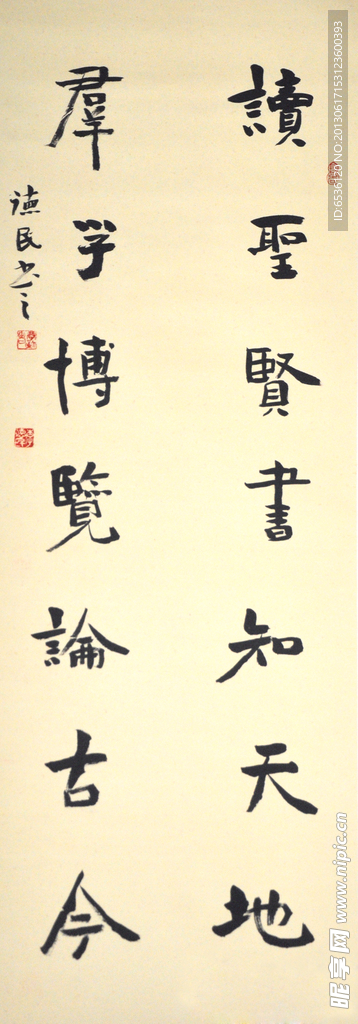 讀聖賢書知天地
羣学博覽論古今
德民书之
ID:6536120 NO:20130617153123600393
昵享网 www.nipic.cn